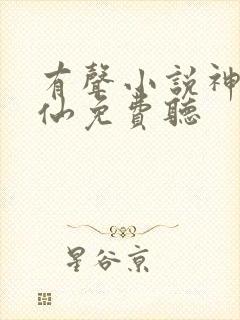 有聲小説神
仙免費聽
星谷京